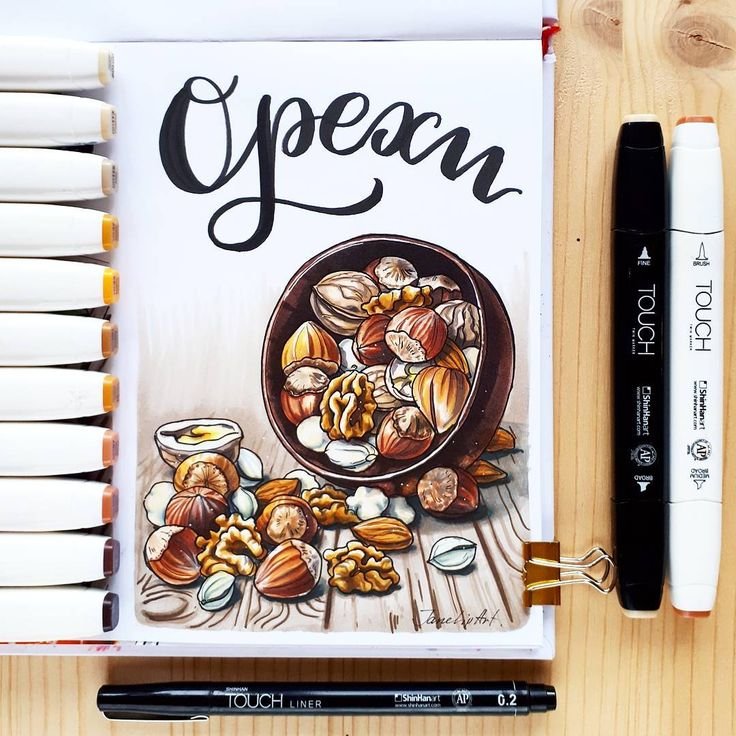 Орехи
FINE
BRUSH
TOUCH
TWIN MARKER
TOUCH
ShinHanart
www.shinhanart.com
ShinHanart
www.shinhanart.com
AP
AP
BROAD
MEDIUM
BROAD
SHINHAN
TOUCH LINER
ShinHanart
www.shinhanart.com
AP
0.2